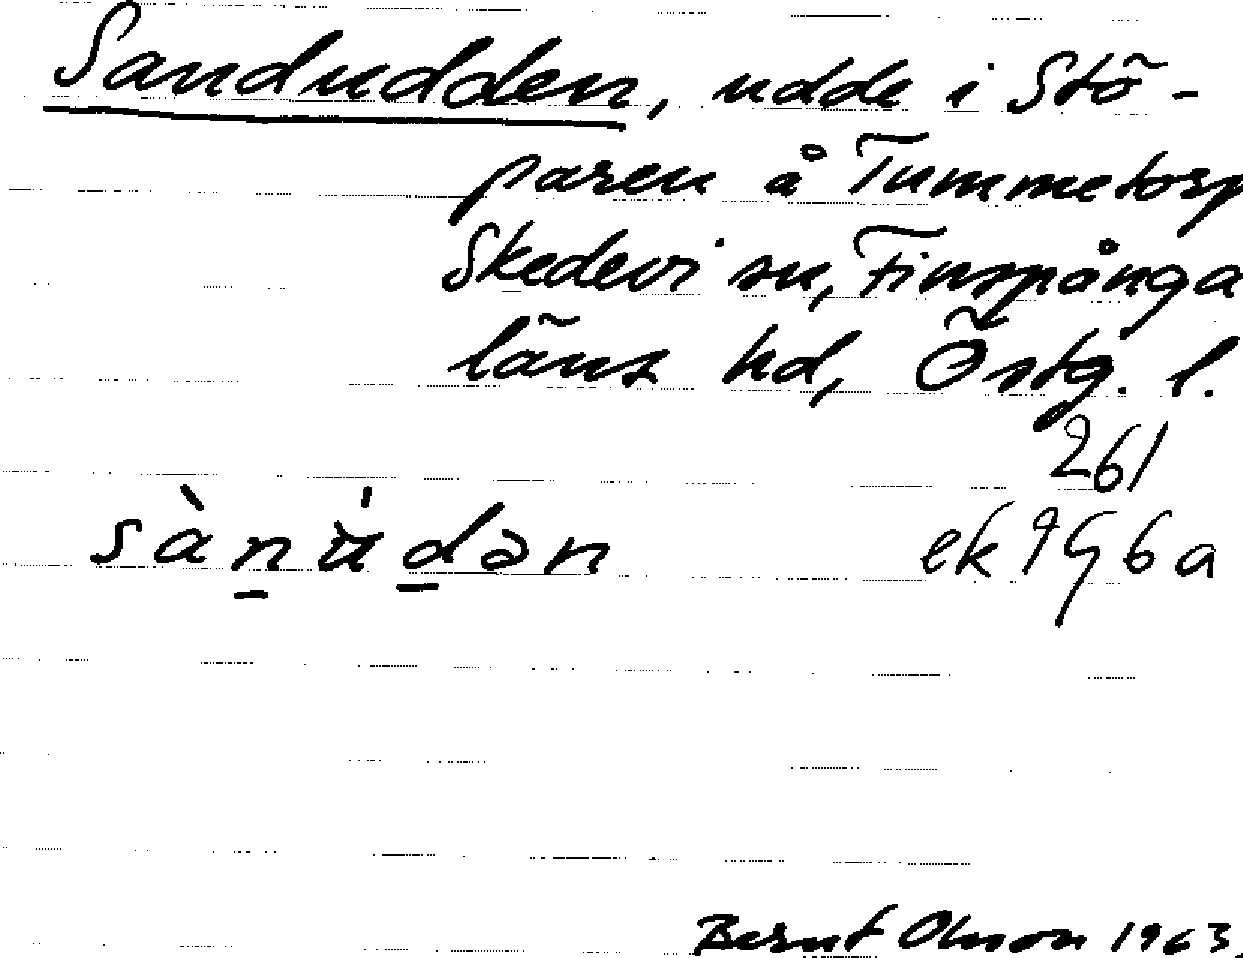 Sandudden, udde i Stö-
paren å Tummetorp
Skedevi sn, Finspånga
läns hd, Östg. l.
261
sàn̲ u̇́d̲ən ek 9G6a
Bernt Olsson 1963.